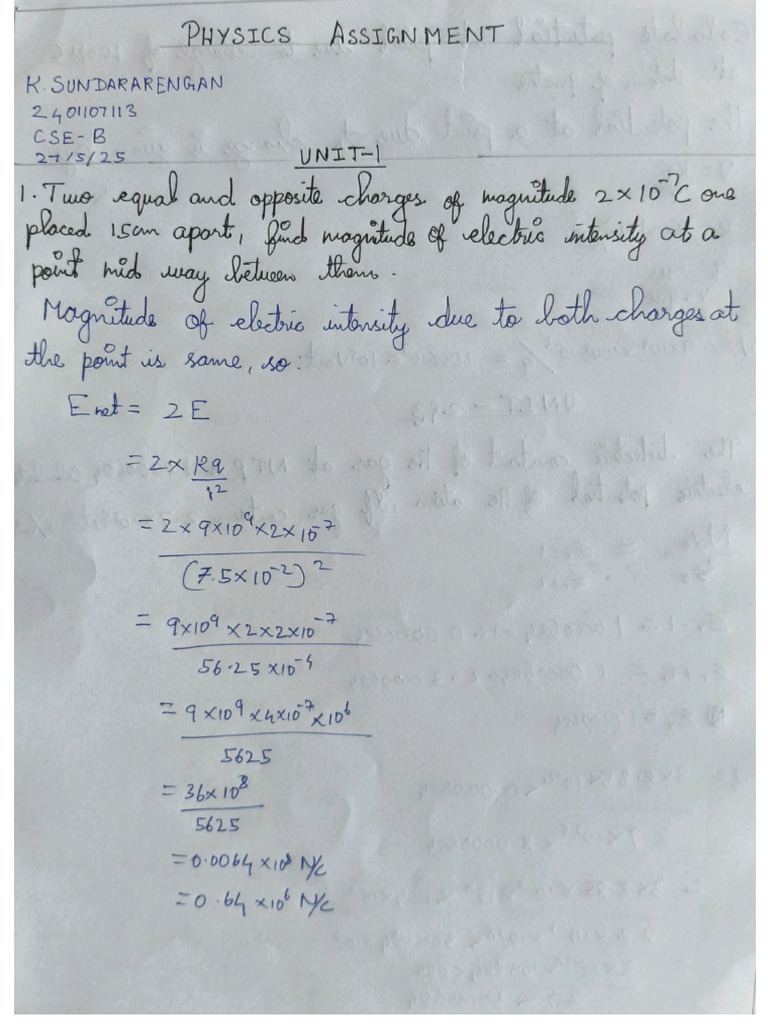 PHYSICS ASSIGNMENT
K. SUNDARARENGAN
2401107113
CSE-B
27/5/25
UNIT-1
1. Two equal and opposite charges of magnitude 2×10⁻⁷C are
placed 15cm apart, find magnitude of electric intensity at a
point mid way between them.
Magnitude of electric intensity due to both charges at
the point is same, so:
E net = 2E
= 2 × kq / r²
= 2×9×10⁹×2×10⁻⁷ / (7.5×10⁻²)²
= 9×10⁹×2×2×10⁻⁷ / 56.25×10⁻⁴
= 9×10⁹×4×10⁻⁷×10⁶ / 5625
= 36×10⁸ / 5625
= 0.0064×10⁸ N/C
= 0.64×10⁶ N/C